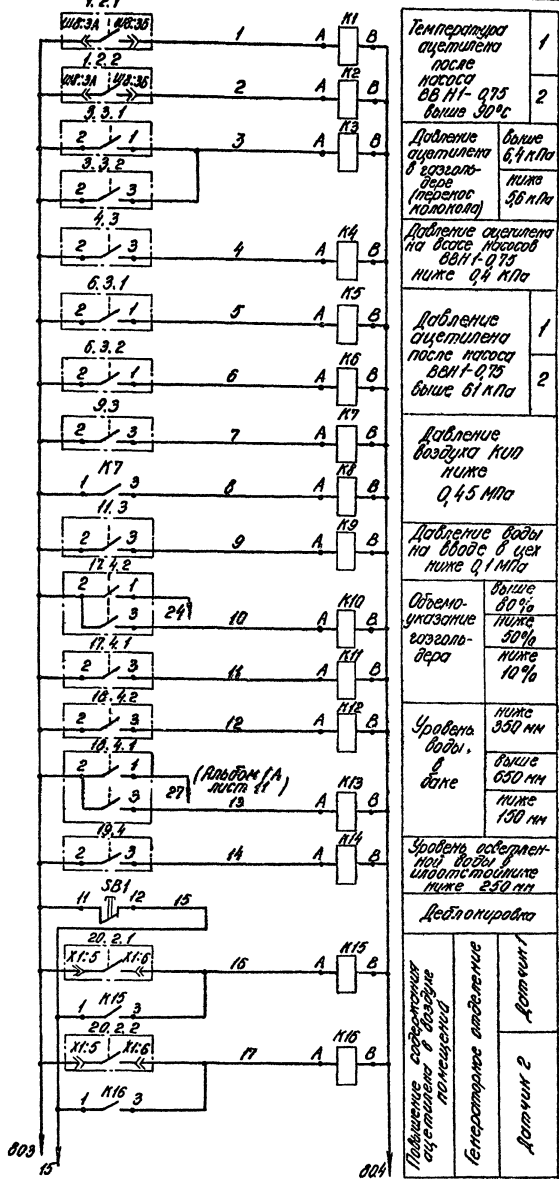 1.2.1
Ш8:3А Ш8:3Б 1 А К1 В
1.2.2
Ш8:3А Ш8:3Б 2 А К2 В
3.3.1
2 1 3 А К3 В
3.3.2
2 3
4.3
2 3 4 А К4 В
6.3.1
2 1 5 А К5 В
6.3.2
2 1 6 А К6 В
9.3
2 3 7 А К7 В
К7
1 3 8 А К8 В
11.3
2 3 9 А К9 В
17.4.2
2 1
24
3 10 А К10 В
17.4.1
2 3 11 А К11 В
18.4.2
2 3 12 А К12 В
18.4.1
2 1
27
(Альбом 1А
лист 11)
3 13 А К13 В
19.4
2 3 14 А К14 В
SB1
11 12 15
20.2.1
X1:5 X1:6 16 А К15 В
К15
1 3
20.2.2
X1:5 X1:6 17 А К16 В
К16
1 3
803
15
804
Температура
ацетилена
после
насоса
ВВН1-0,75
выше 90°С
1
2
Давление
ацетилена
в газголь-
дере
(перекос
колокола)
выше
6,4 кПа
ниже
5,6 кПа
Давление ацетилена
на всасе насосов
ВВН1-0,75
ниже 0,4 КПа
Давление
ацетилена
после насоса
ВВН1-0,75
выше 61 кПа
1
2
Давление
воздуха КИП
ниже
0,45 МПа
Давление воды
на вводе в цех
ниже 0,1 МПа
Объемо-
указание
газголь-
дера
выше
80%
ниже
50%
ниже
10%
Уровень
воды,
в
баке
ниже
350 мм
выше
650 мм
ниже
150 мм
Уровень осветлен-
ной воды в
илоотстойнике
ниже 250 мм
Деблокировка
Повышение содержания
ацетилена в воздухе
помещений
Генераторное отделение
Датчик 1
Датчик 2